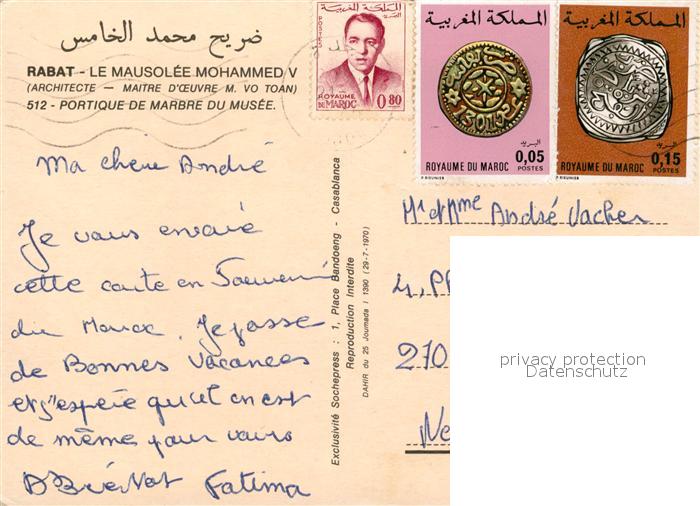 ضريح محمد الخامس
RABAT - LE MAUSOLÉE MOHAMMED V
(ARCHITECTE — MAITRE D'ŒUVRE M. VO TOAN)
512 - PORTIQUE DE MARBRE DU MUSÉE.
Ma chère André
Je vous envoie
cette carte en Souvenir
du Maroc. Je passe
de Bonnes Vacances
et j'espère qu'il en est
de même pour vous
Fatima
Exclusivité Sochepress : 1, Place Bandoeng - Casablanca
Reproduction Interdite
DAHIR du 25 Joumada I 1390 (29-7-1970)
المملكة المغربية
POSTES
ROYAUME
DU MAROC
0.80
المملكة المغربية
البريد
ROYAUME DU MAROC
0,05
POSTES
المملكة المغربية
البريد
ROYAUME DU MAROC
0,15
POSTES
Mr et Mme André Vacher
4, Pl
270
Ne
privacy protection
Datenschutz